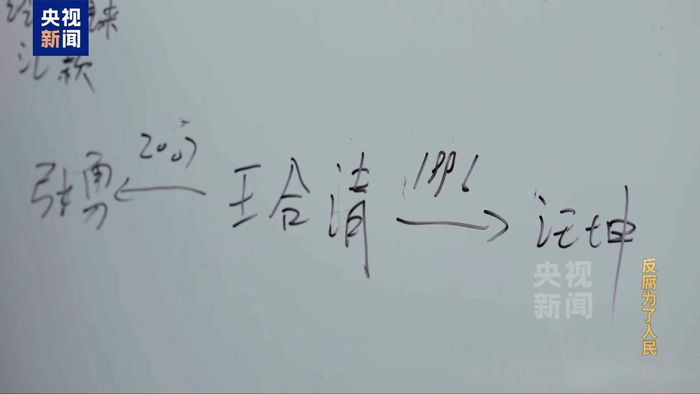 央视
新闻
来
汇款
2007
1996
张勇 ← 王合清 → 汪坤
央视
新闻
反腐为了人民